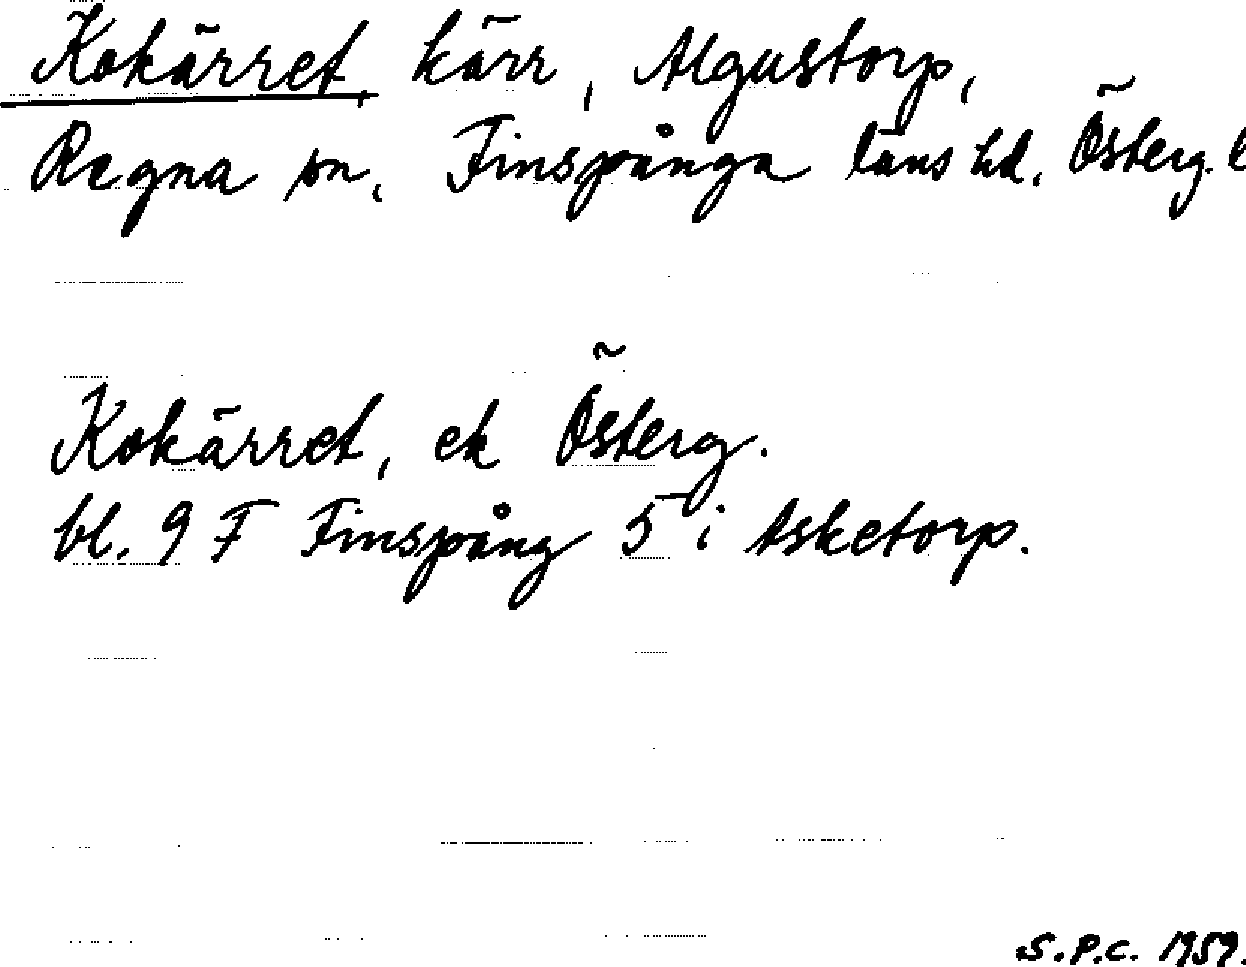 Kokärret, kärr, Algustorp,
Regna sn, Finspånga läns hd, Österg. l
Kokärret, ek Österg.
bl. 9 F Finspång 5 i Asketorp.
S.P.C. 1959.